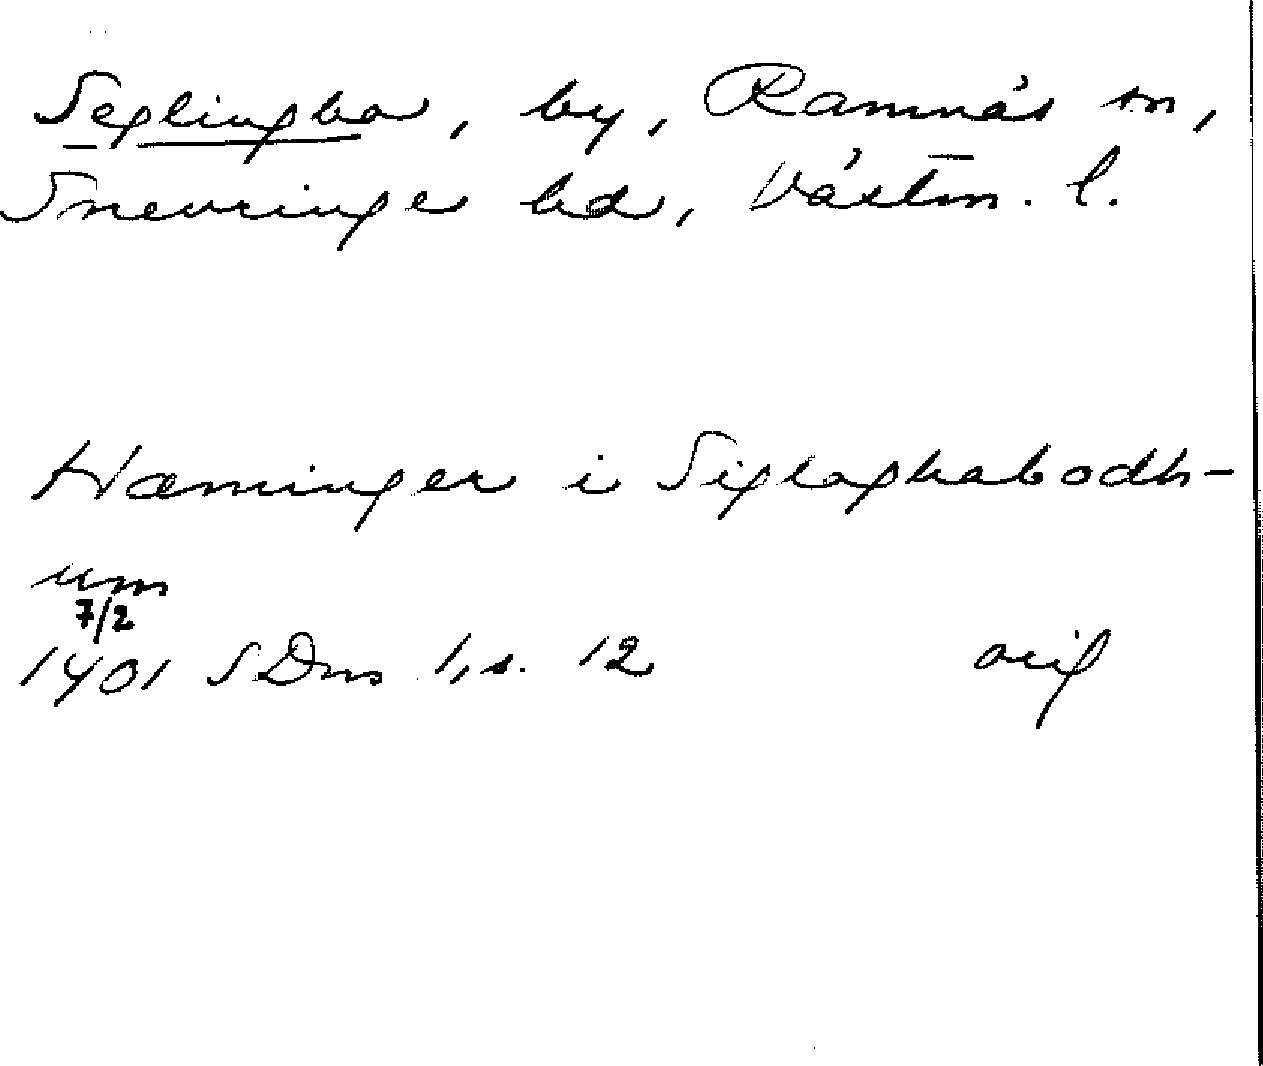 Seglingbo, by, Ramnäs sn,
Snevringe hd, Västm. l.
Hæminger i Siglaghabodh-
um
7/2
1401 SDns 1, s. 12 orig